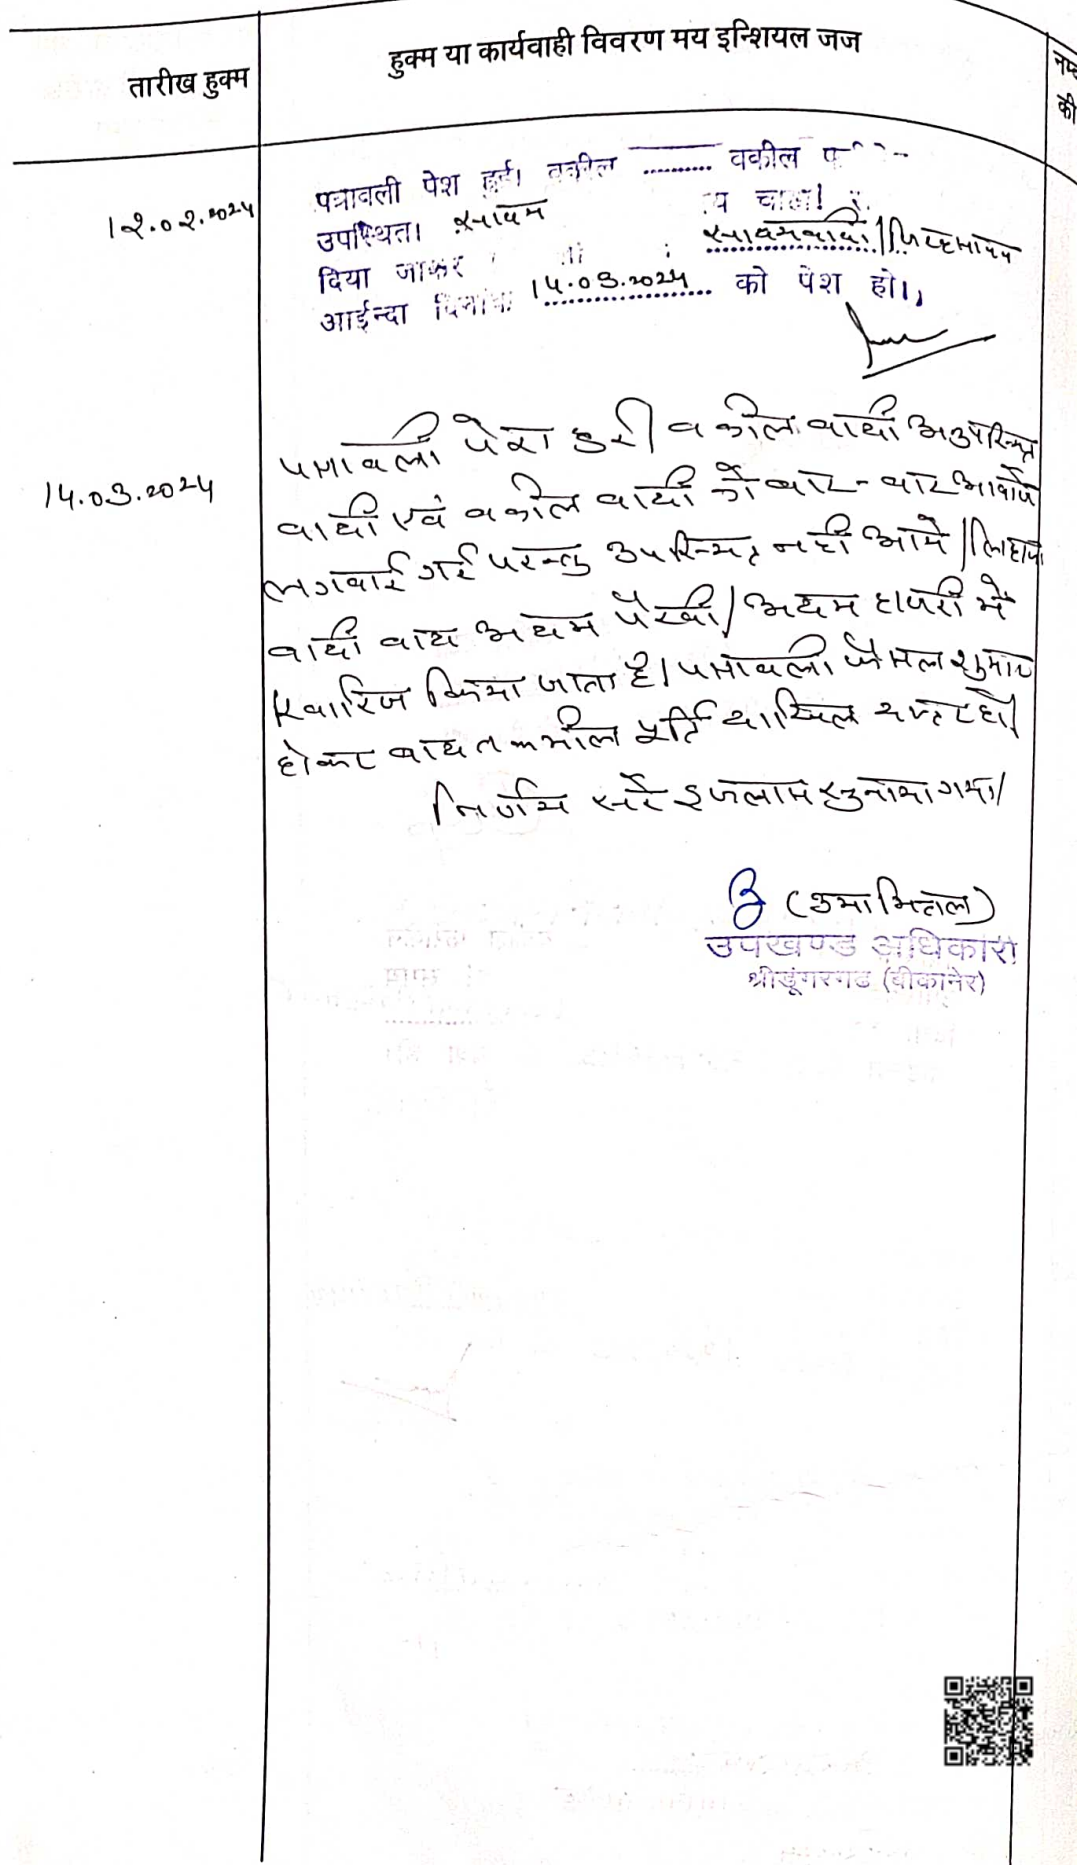 तारीख हुक्म
हुक्म या कार्यवाही विवरण मय इन्शियल जज
की
12.02.2024
पत्रावली पेश हुई। वकील .......... वकील
उपस्थित। चाहा।
दिया जाकर
आईन्दा दिनांक 14.03.2024 को पेश हो।
14.03.2024
पत्रावली पेश हुई। वकील वादी अनुपस्थित
वादी एवं वकील वादी को बार-बार आवाजे
लगवाई गई परन्तु उपस्थित नहीं आये। लिहाजा
वादी वाद अदम पैरवी/अदम हाजरी में
खारिज किया जाता है। पत्रावली फैसल शुमार
होकर बाद तकमील पूर्ति दाखिल दफ्तर हो।
निर्णय सरे इजलास सुनाया गया।
(उमा मित्तल)
उपखण्ड अधिकारी
श्रीडूंगरगढ (बीकानेर)